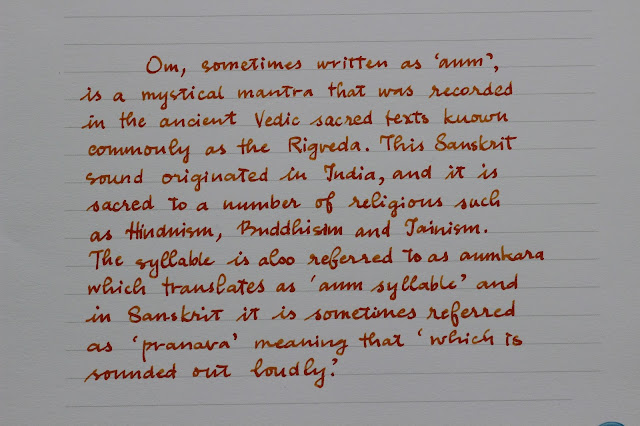 Om, sometimes written as 'aum',
is a mystical mantra that was recorded
in the ancient Vedic sacred texts known
commonly as the Rigveda. This Sanskrit
sound originated in India, and it is
sacred to a number of religious such
as Hinduism, Buddhisim and Jainism.
The syllable is also referred to as aumkara
which translates as 'aum syllable' and
in Sanskrit it is sometimes referred
as 'pranava' meaning that 'which is
sounded out loudly.'